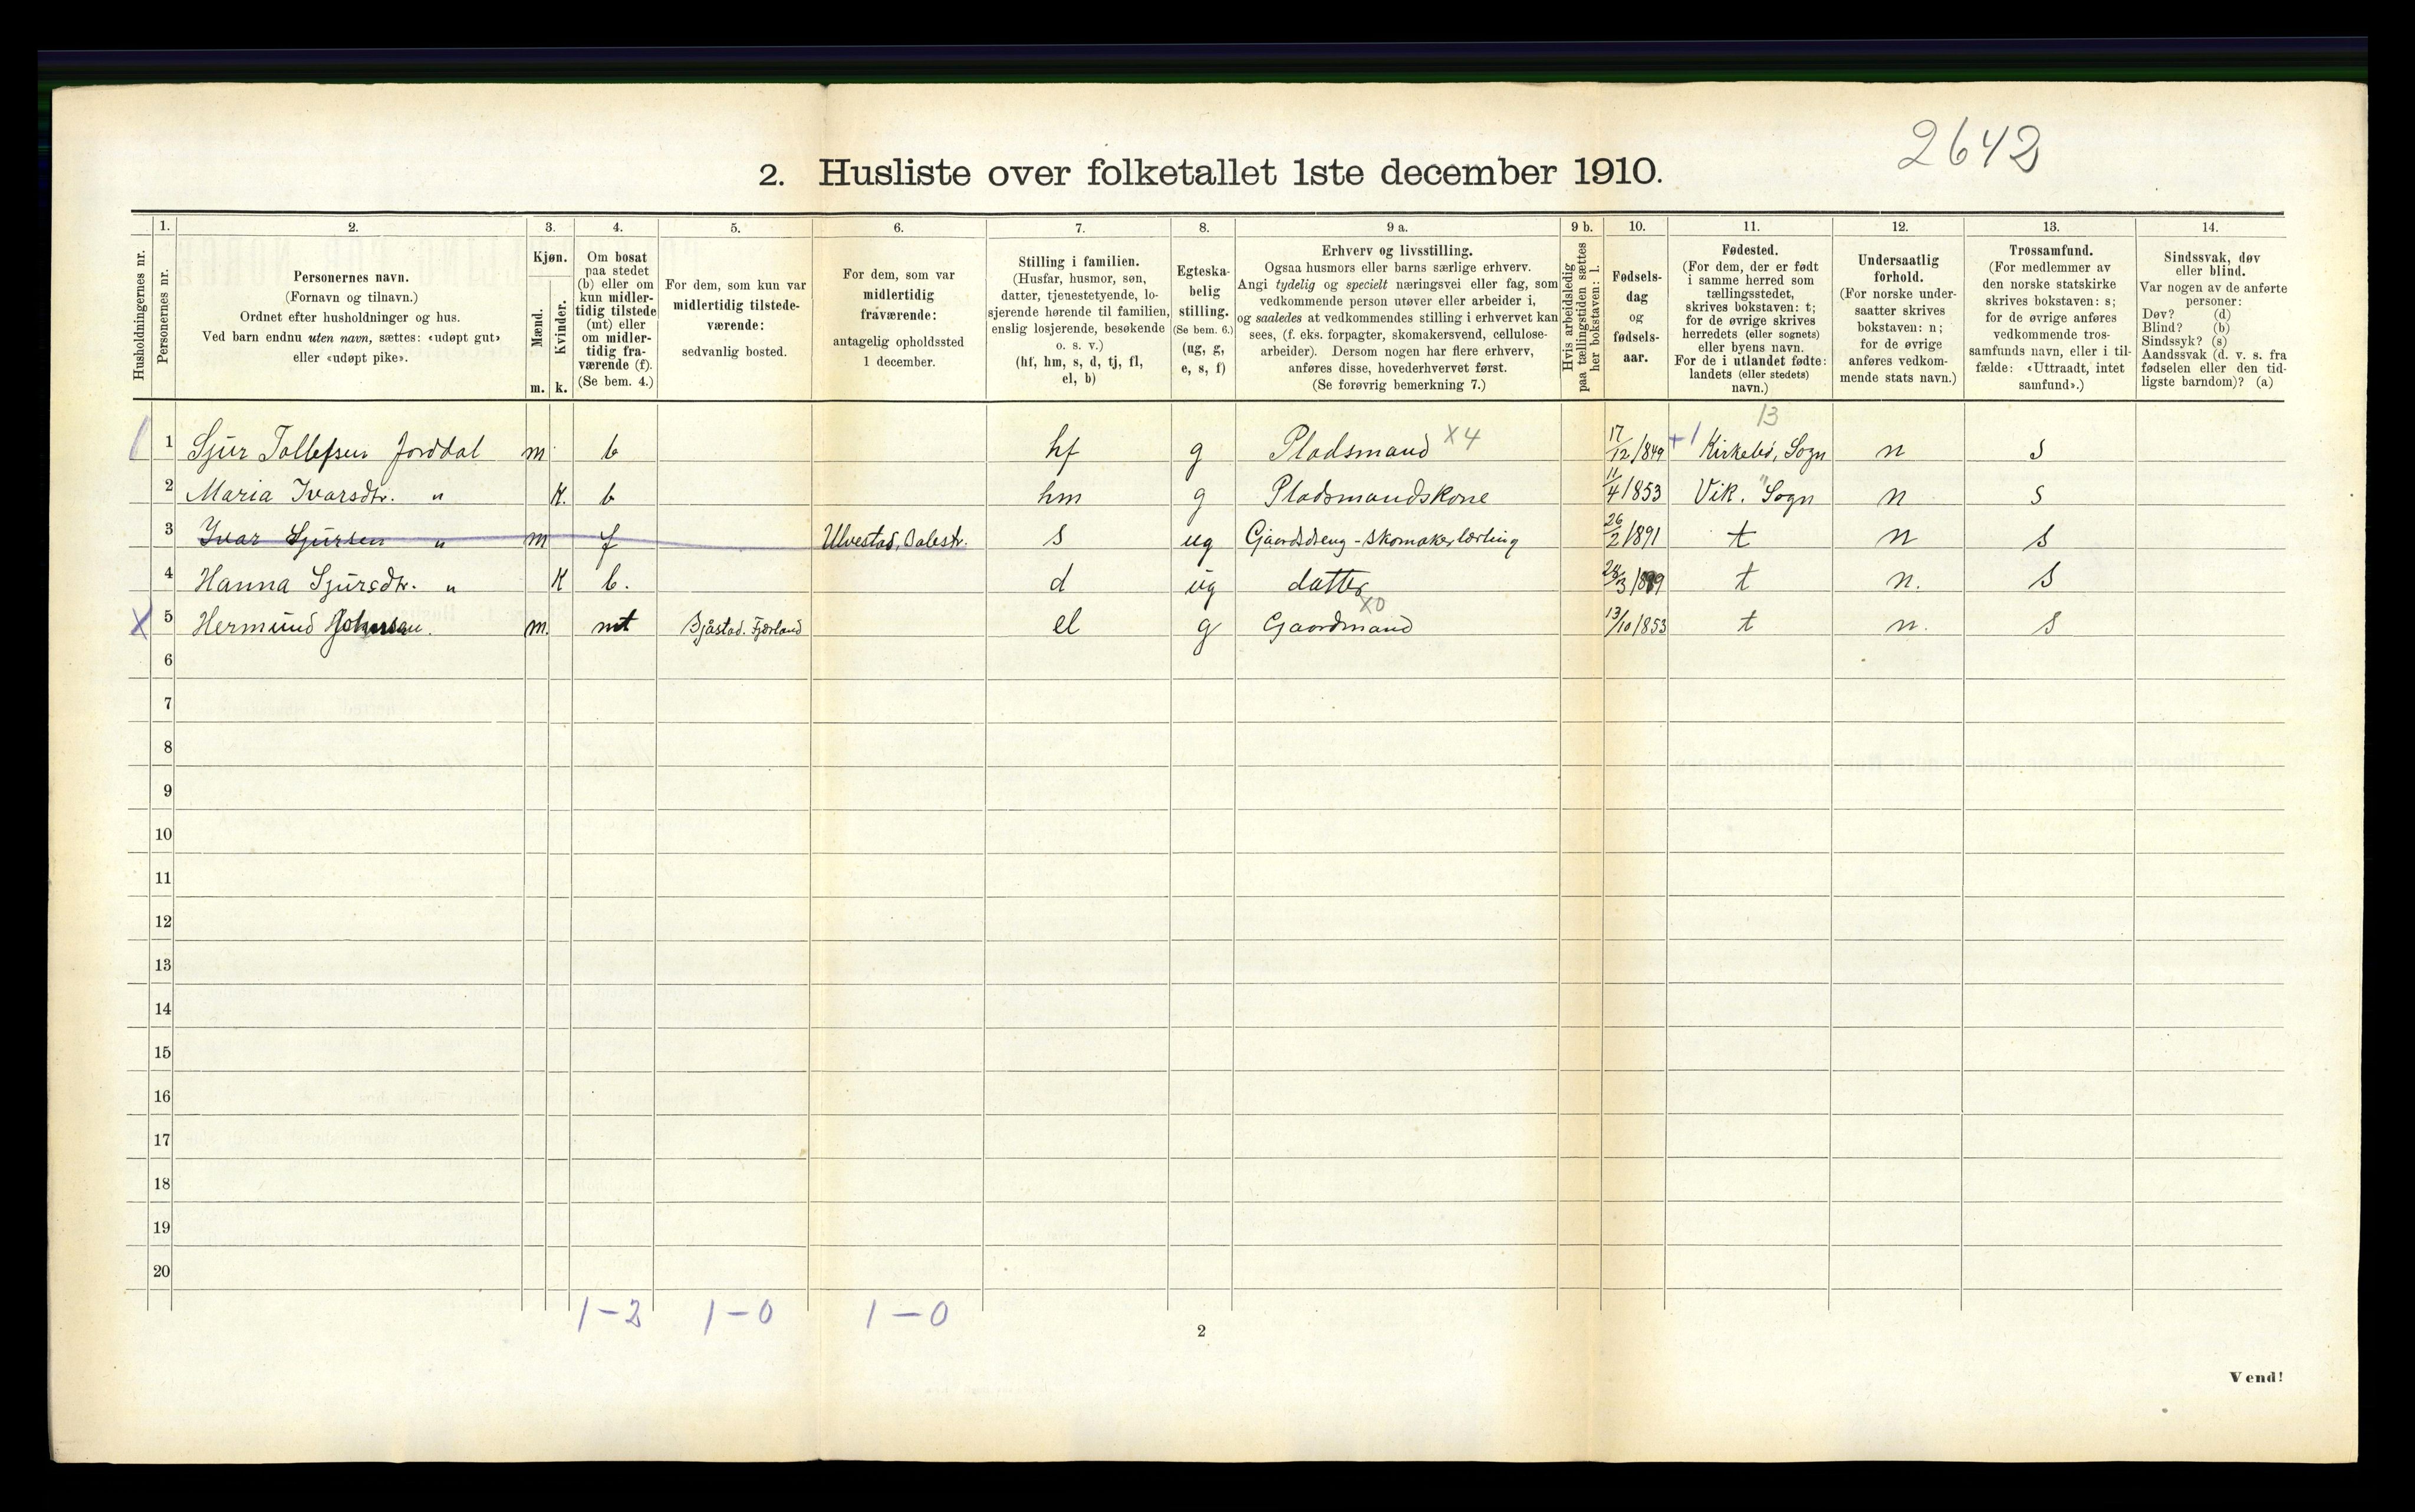 2642
2. Husliste over folketallet 1ste december 1910.
Husholdningernes nr.
1.
Personernes nr.
2.
Personernes navn.
(Fornavn og tilnavn.)
Ordnet efter husholdninger og hus.
Ved barn endnu uten navn, sættes: «udøpt gut»
eller «udøpt pike».
3.
Kjøn.
Mænd.
m.
Kvinder.
k.
4.
Om bosat
paa stedet
(b) eller om
kun midler-
tidig tilstede
(mt) eller
om midler-
tidig fra-
værende (f).
(Se bem. 4.)
5.
For dem, som kun var
midlertidig tilstede-
værende:
sedvanlig bosted.
6.
For dem, som var
midlertidig
fraværende:
antagelig opholdssted
1 december.
7.
Stilling i familien.
(Husfar, husmor, søn,
datter, tjenestetyende, lo-
sjerende hørende til familien,
enslig losjerende, besøkende
o. s. v.)
(hf, hm, s, d, tj, fl,
el, b)
8.
Egteska-
belig
stilling.
(Se bem. 6.)
(ug, g,
e, s, f)
9 a.
Erhverv og livsstilling.
Ogsaa husmors eller barns særlige erhverv.
Angi tydelig og specielt næringsvei eller fag, som
vedkommende person utøver eller arbeider i,
og saaledes at vedkommendes stilling i erhvervet kan
sees, (f. eks. forpagter, skomakersvend, cellulose-
arbeider). Dersom nogen har flere erhverv,
anføres disse, hovederhvervet først.
(Se forøvrig bemerkning 7.)
9 b.
Hvis arbeidsledig
paa tællingstiden sættes
her bokstaven: l.
10.
Fødsels-
dag
og
fødsels-
aar.
11.
Fødested.
(For dem, der er født
i samme herred som
tællingsstedet,
skrives bokstaven: t;
for de øvrige skrives
herredets (eller sognets)
eller byens navn.
For de i utlandet fødte:
landets (eller stedets)
navn.)
12.
Undersaatlig
forhold.
(For norske under-
saatter skrives
bokstaven: n;
for de øvrige
anføres vedkom-
mende stats navn.)
13.
Trossamfund.
(For medlemmer av
den norske statskirke
skrives bokstaven: s;
for de øvrige anføres
vedkommende tros-
samfunds navn, eller i til-
fælde: «Uttraadt, intet
samfund».)
14.
Sindssvak, døv
eller blind.
Var nogen av de anførte
personer:
Døv? (d)
Blind? (b)
Sindssyk? (s)
Aandssvak (d. v. s. fra
fødselen eller den tid-
ligste barndom)? (a)
13
1 Sjur Tollefsen Jorddal m b hf g Pladsmand X4 17/12/849 +1 Kirkebø, Sogn n s
2 Maria Ivarsdtr. " K. b hm g Pladsmandskone 11/4/853 Vik. Sogn n s
3 Ivar Sjursen " m f Ulvestad, Balestr. s ug Gaardsdreng - skomakerlærling 26/2/1891 t n s
4 Hanna Sjursdtr. " K b. d ug datter t n. s
X 5 Hermund m. mt Bjåstad. Fjærland el g Gaardmand X0 13/10/853 t n. s
6
7
8
9
10
11
12
13
14
15
16
17
18
19
20
1-2 1-0 1-0
2
Vend!